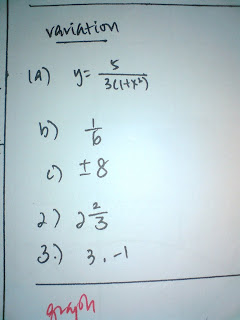 variation
1A) y= 5/3(1+x²)
b) 1/6
c) ±8
2) 2 2/3
3.) 3, -1
graph